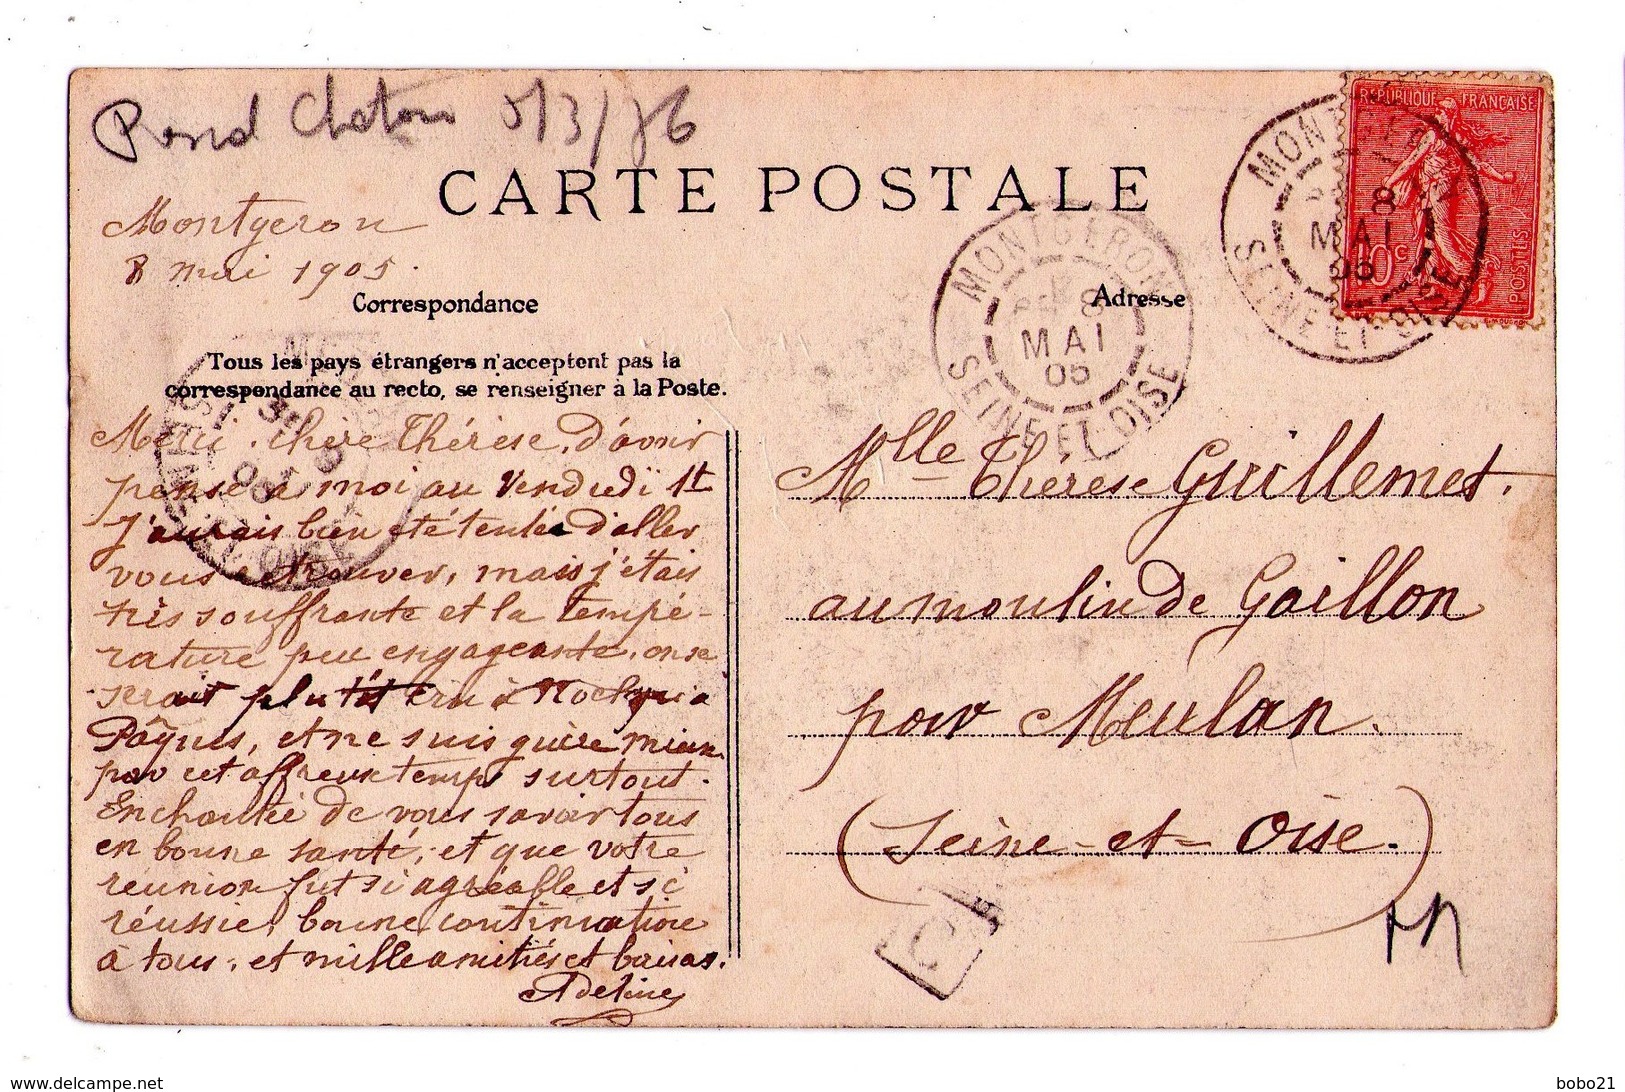 Rond Chatou 5/3/76
CARTE POSTALE
Montgeron
8 mai 1905.
Correspondance
Tous les pays étrangers n'acceptent pas la
correspondance au recto, se renseigner à la Poste.
Merci, chère Thérèse, d'avoir
pensé à moi au Vendredi 1t
J'aurais bien été tentée d'aller
vous retrouver, mais j'étais
très souffrante et la tempé-
rature peu engageante, on se
serait plutôt cru à Noël qu'à
Pâques, et ne suis guère mieux
par cet affreux temps surtout.
Enchantée de vous savoir tous
en bonne santé, et que votre
réunion fut si agréable et si
réussie, bonne continuation
à tous, et mille amitiés et baisers.
Adeline
Adresse
MONTGERON
8
MAI
05
SEINE ET OISE
MONTGERON
8
MAI
05
SEINE ET OISE
REPUBLIQUE FRANÇAISE
10c
POSTES
E. MOUCHON
Mlle Thérèse Guillemet.
au moulin de Gaillon
par Meulan.
(Seine-et-Oise.)
delcampe.net
bobo21